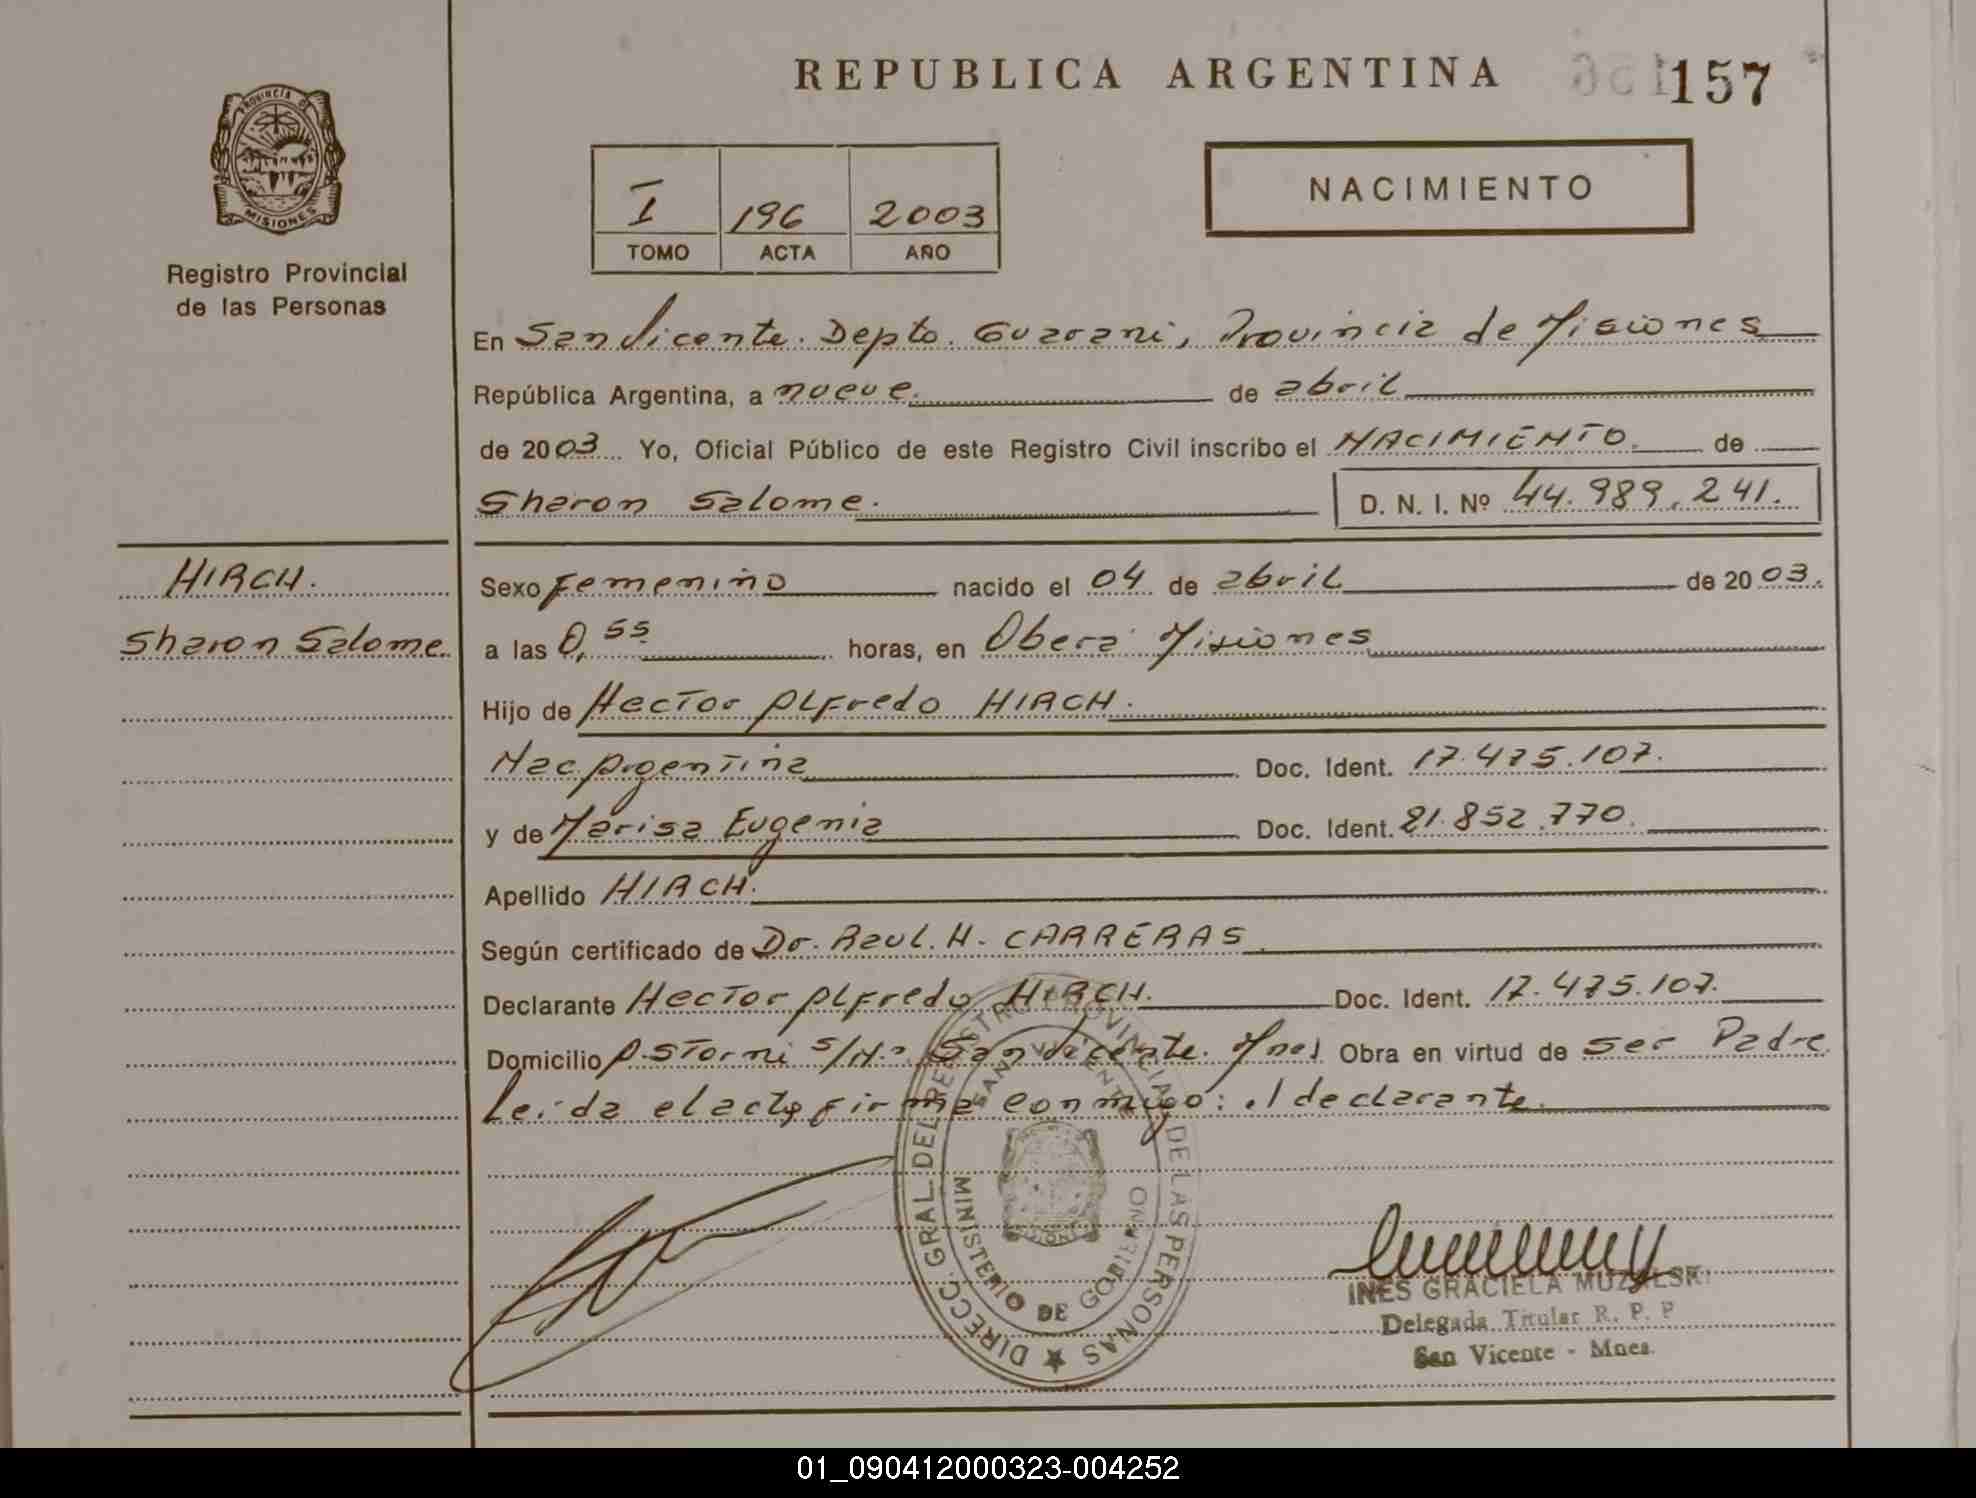 REPUBLICA ARGENTINA
157
PROVINCIA DE
MISIONES
Registro Provincial
de las Personas
I 196 2003
TOMO ACTA AÑO
NACIMIENTO
En San Vicente. Depto. Guarani, Provincia de Misiones
República Argentina, a nueve. de abril
de 2003 Yo, Oficial Público de este Registro Civil inscribo el NACIMIENTO. de
Sharon Salome. D. N. I. Nº 44.989.241.
HIRCH.
Sharon Salome.
Sexo Femenino nacido el 04 de abril de 2003.
a las 0,55 horas, en Obera Misiones
Hijo de Hector Alfredo HIRCH.
Nac Argentina Doc. Ident. 17.475.107.
y de Marisa Eugenia Doc. Ident. 21.852.770.
Apellido HIRCH.
Según certificado de Dr. Raul. H. CARRERAS.
Declarante Hector Alfredo HIRCH. Doc. Ident. 17.475.107.
Domicilio A. Storni S/Nº San Vicente. Mnes Obra en virtud de ser Padre
Leida el acta firma conmigo: el declarante.
DIRECC. GRAL. DEL REGISTRO PROVINCIAL DE LAS PERSONAS
SAN VICENTE
MINISTERIO DE GOBIERNO
INES GRACIELA
Delegada Titular R. P. P
San Vicente - Mnes.
01_090412000323-004252